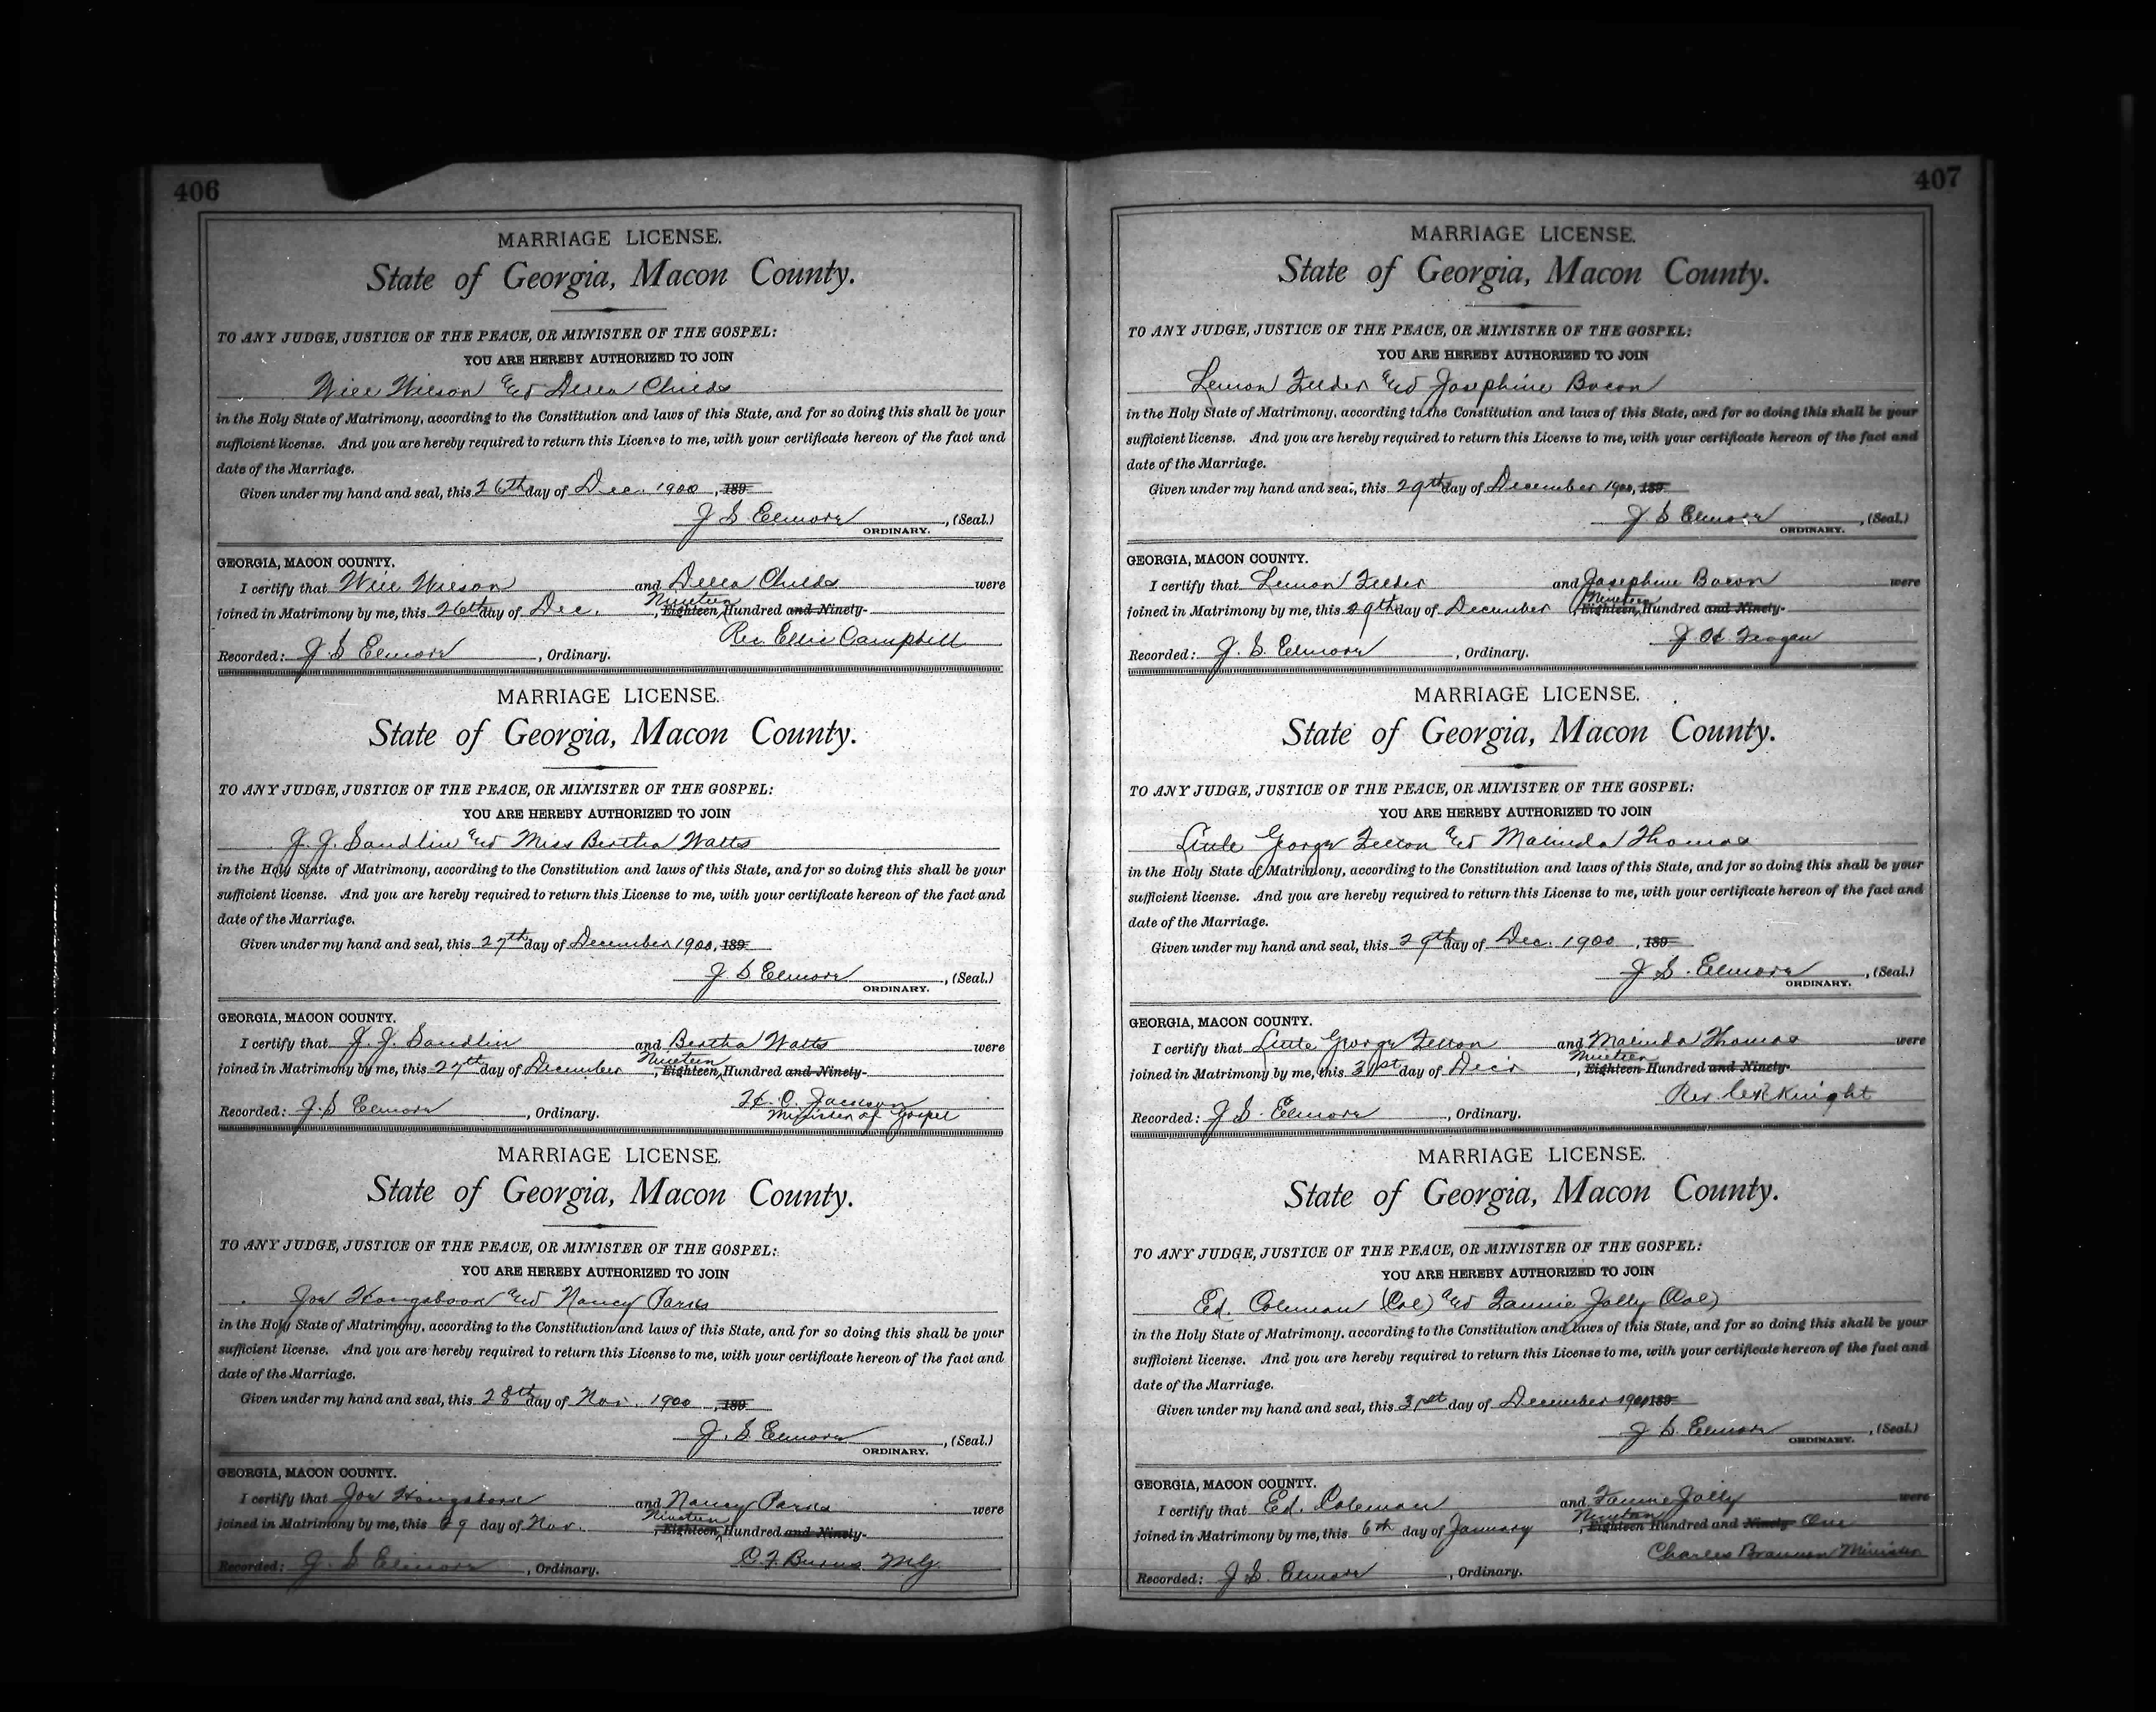 406
MARRIAGE LICENSE.
State of Georgia, Macon County.
TO ANY JUDGE, JUSTICE OF THE PEACE, OR MINISTER OF THE GOSPEL:
YOU ARE HEREBY AUTHORIZED TO JOIN
Will Wilson and Della Childs
in the Holy State of Matrimony, according to the Constitution and laws of this State, and for so doing this shall be your
sufficient license. And you are hereby required to return this License to me, with your certificate hereon of the fact and
date of the Marriage.
Given under my hand and seal, this 26th day of Dec. 1900, 189
J S Elmore, (Seal.)
ORDINARY.
GEORGIA, MACON COUNTY.
I certify that Will Wilson and Della Childs were
Nineteen
joined in Matrimony by me, this 26th day of Dec., Eighteen Hundred and Ninety-
Rev Ellis Campbell
Recorded: J. S Elmore, Ordinary.
MARRIAGE LICENSE.
State of Georgia, Macon County.
TO ANY JUDGE, JUSTICE OF THE PEACE, OR MINISTER OF THE GOSPEL:
YOU ARE HEREBY AUTHORIZED TO JOIN
J. J. Sandlin and Miss Bertha Watts
in the Holy State of Matrimony, according to the Constitution and laws of this State, and for so doing this shall be your
sufficient license. And you are hereby required to return this License to me, with your certificate hereon of the fact and
date of the Marriage.
Given under my hand and seal, this 27th day of December 1900, 189
J S Elmore, (Seal.)
ORDINARY.
GEORGIA, MACON COUNTY.
I certify that J. J. Sandlin and Bertha Watts were
Nineteen
joined in Matrimony by me, this 27th day of December, Eighteen Hundred and Ninety-
H. C. Jackson
Recorded: J. S Elmore, Ordinary. Minister of Gospel
MARRIAGE LICENSE.
State of Georgia, Macon County.
TO ANY JUDGE, JUSTICE OF THE PEACE, OR MINISTER OF THE GOSPEL:
YOU ARE HEREBY AUTHORIZED TO JOIN
Joe and Nancy Parks
in the Holy State of Matrimony, according to the Constitution and laws of this State, and for so doing this shall be your
sufficient license. And you are hereby required to return this License to me, with your certificate hereon of the fact and
date of the Marriage.
Given under my hand and seal, this 28th day of Nov. 1900, 189
J. S. Elmore, (Seal.)
ORDINARY.
GEORGIA, MACON COUNTY.
I certify that Joe and Nancy Parks were
Nineteen
joined in Matrimony by me, this day of Nov., Eighteen Hundred and Ninety-
O. F. Burns M G.
Recorded: J. S Elmore, Ordinary.
407
MARRIAGE LICENSE.
State of Georgia, Macon County.
TO ANY JUDGE, JUSTICE OF THE PEACE, OR MINISTER OF THE GOSPEL:
YOU ARE HEREBY AUTHORIZED TO JOIN
Lemon Felder and Josephine Bacon
in the Holy State of Matrimony, according to the Constitution and laws of this State, and for so doing this shall be your
sufficient license. And you are hereby required to return this License to me, with your certificate hereon of the fact and
date of the Marriage.
Given under my hand and seal, this 29th day of December 1900, 189
J. S Elmore, (Seal.)
ORDINARY.
GEORGIA, MACON COUNTY.
I certify that Lemon Felder and Josephine Bacon were
Nineteen
joined in Matrimony by me, this 29th day of December, Eighteen, Hundred and Ninety-
J. H.
Recorded: J. S. Elmore, Ordinary.
MARRIAGE LICENSE.
State of Georgia, Macon County.
TO ANY JUDGE, JUSTICE OF THE PEACE, OR MINISTER OF THE GOSPEL:
YOU ARE HEREBY AUTHORIZED TO JOIN
Little George Felton and Malinda Thomas
in the Holy State of Matrimony, according to the Constitution and laws of this State, and for so doing this shall be your
sufficient license. And you are hereby required to return this License to me, with your certificate hereon of the fact and
date of the Marriage.
Given under my hand and seal, this 29th day of Dec. 1900, 189
J S. Elmore, (Seal.)
ORDINARY.
GEORGIA, MACON COUNTY.
I certify that Little George Felton and Malinda Thomas were
Nineteen
joined in Matrimony by me, this 31st day of Decr, Eighteen Hundred and Ninety-
Rev. Knight
Recorded: J S. Elmore, Ordinary.
MARRIAGE LICENSE.
State of Georgia, Macon County.
TO ANY JUDGE, JUSTICE OF THE PEACE, OR MINISTER OF THE GOSPEL:
YOU ARE HEREBY AUTHORIZED TO JOIN
Ed. Coleman (Col) and Fannie Jolly (Col)
in the Holy State of Matrimony, according to the Constitution and laws of this State, and for so doing this shall be your
sufficient license. And you are hereby required to return this License to me, with your certificate hereon of the fact and
date of the Marriage.
Given under my hand and seal, this 31st day of December 1900 189
J S. Elmore, (Seal.)
ORDINARY.
GEORGIA, MACON COUNTY.
I certify that Ed. Coleman and Fannie Jolly were
Nineteen
joined in Matrimony by me, this 6th day of January, Eighteen Hundred and Ninety One
Charles Brannen Minister
Recorded: J S. Elmore, Ordinary.